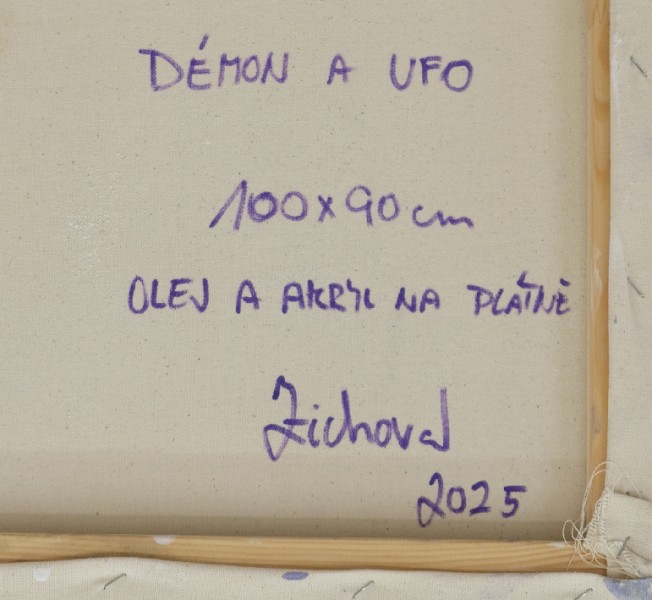 DÉMON A UFO
100x90 cm
OLEJ A AKRYL NA PLÁTNĚ
Zichová
2025